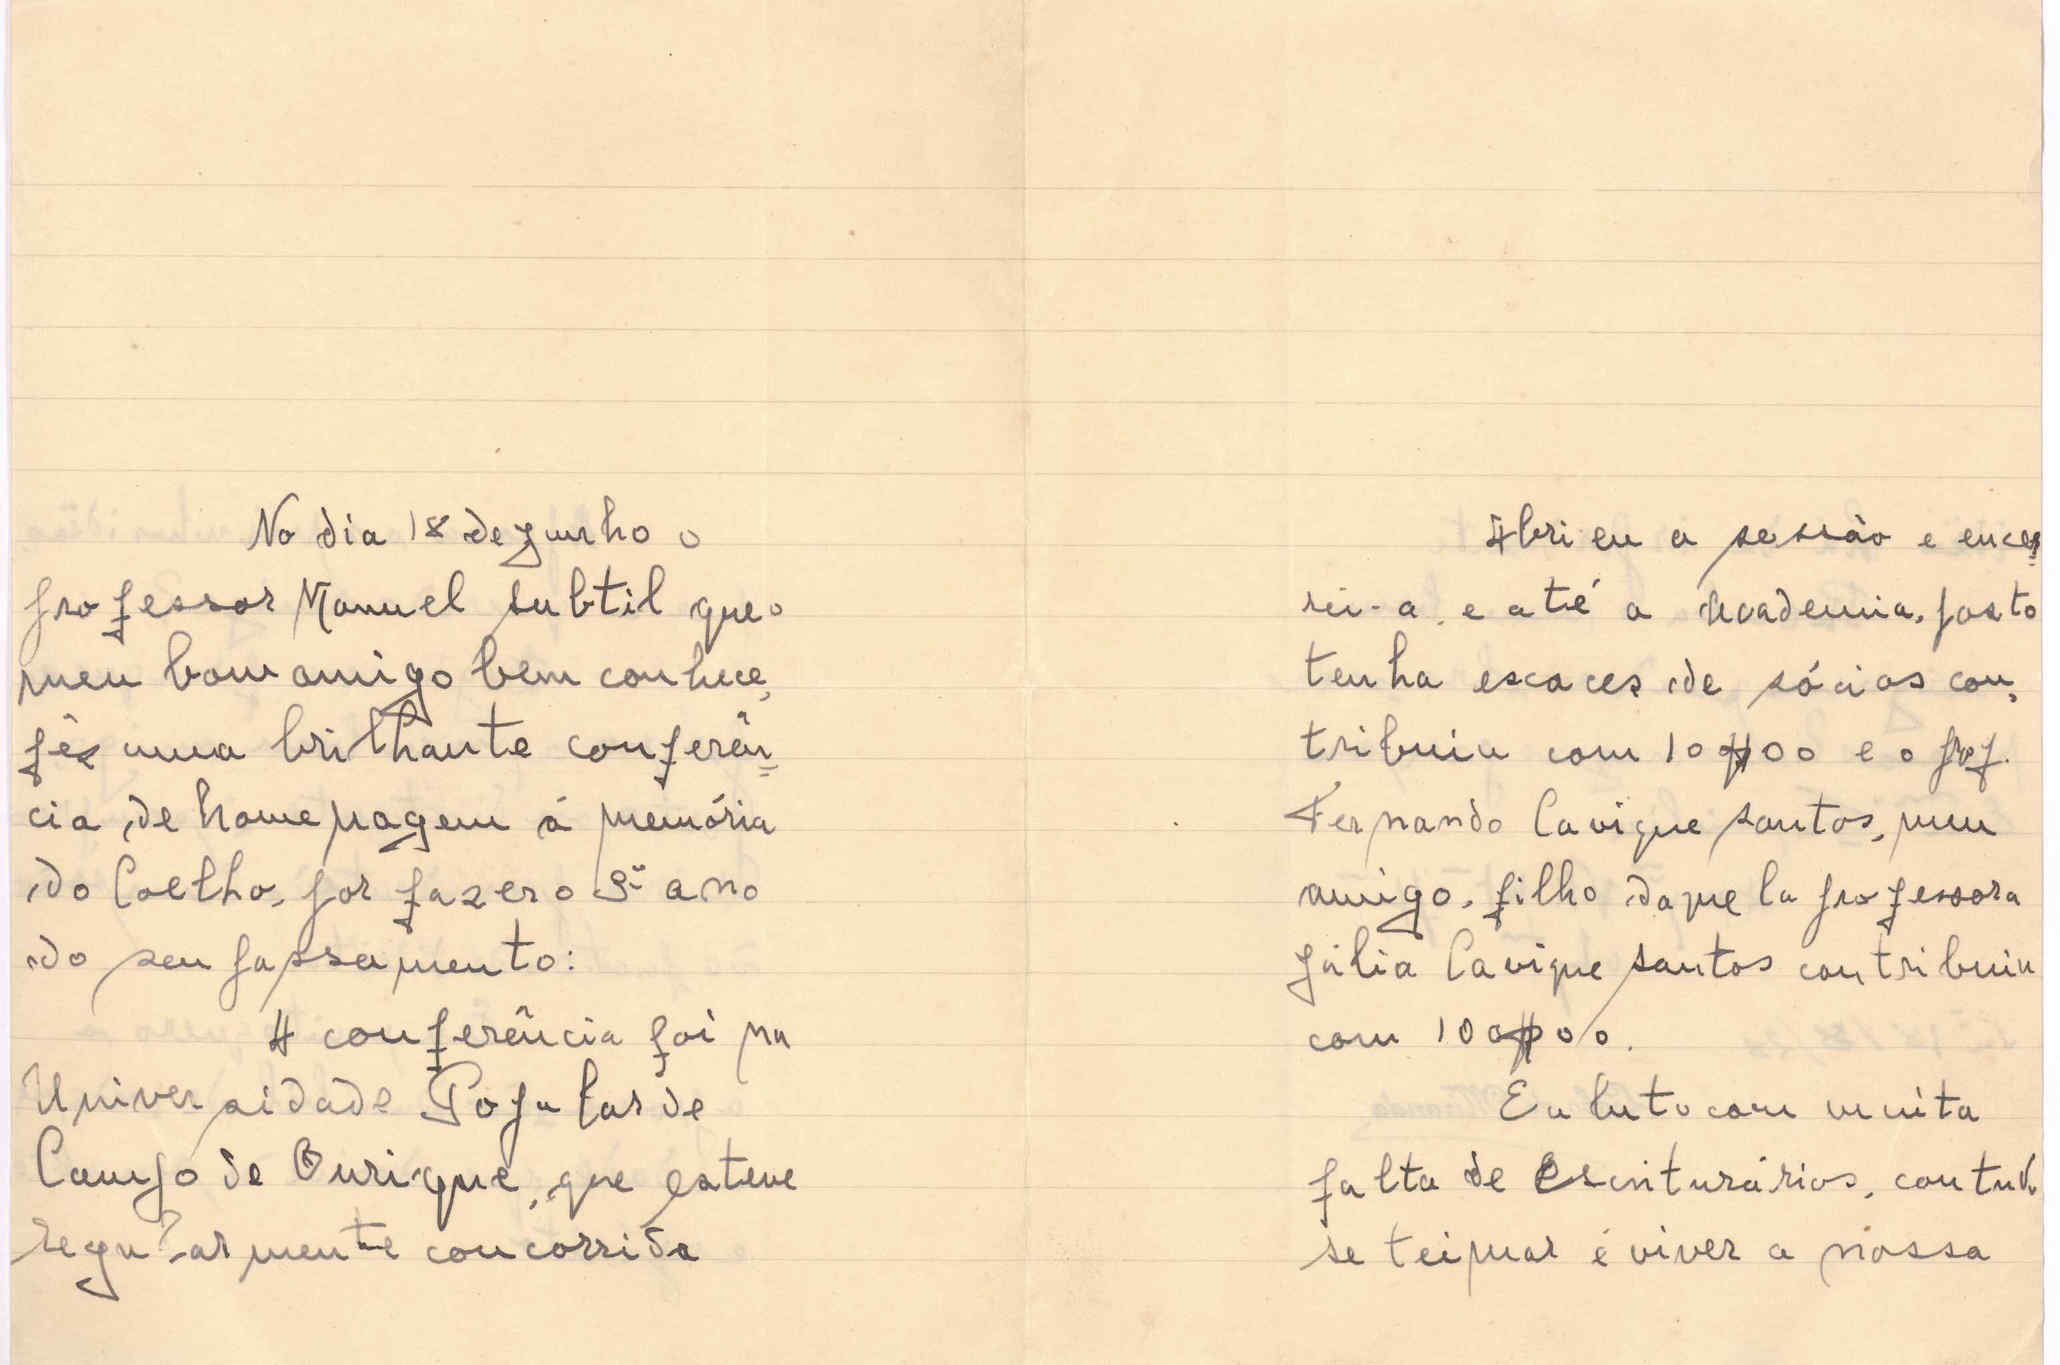 No dia 18 de Junho o
professor Manuel Subtil que o
meu bom amigo bem conhece,
fês uma brilhante conferên=
cia de homenagem á memória
do Coelho, por fazer o 3º ano
do seu passamento:
A conferência foi na
Universidade Popular de
Campo de Ourique, que esteve
regularmente concorrida
Abri eu a sessão e encer=
rei-a, e até a Academia, posto
tenha escaces de sócios con,
tribuiu com 10$00 e o prof.
Fernando Cavique Santos, meu
amigo, filho daquela professora
Júlia Cavique Santos contribuiu
com 100$00.
Eu luto com muita
falta de escriturários, contudo
se teimar é viver a nossa